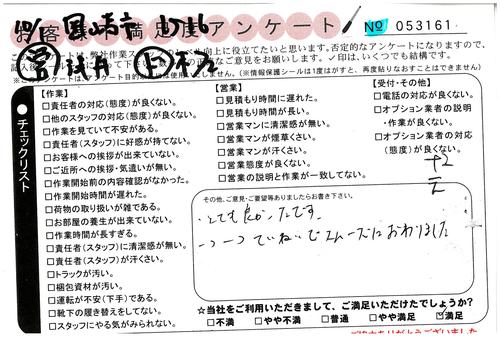 岡崎市 10/16
お客様満足度アンケート
No 053161
は、弊社作業スタッフのレベル向上に役立てたいと思います。否定的なアンケートになりますので、
ご意見をお願いします。✓印は、いくつでも結構です。
(※情報保護シールは1度はがすと、再度貼りなおすことはできません)
チェックリスト
【作業】
□責任者の対応(態度)が良くない。
□他のスタッフの対応(態度)が良くない。
□作業を見ていて不安がある。
□責任者(スタッフ)に好感が持てない。
□お客様への挨拶が出来ていない。
□ご近所への挨拶・気遣いが無い。
□作業開始前の内容確認がなかった。
□作業開始時間が遅れた。
□荷物の取り扱いが雑である。
□お部屋の養生が出来ていない。
□作業時間が長すぎる。
□責任者(スタッフ)に清潔感が無い。
□責任者(スタッフ)が汗くさい。
□トラックが汚い。
□梱包資材が汚い。
□運転が不安(下手)である。
□靴下の履き替えをしてない。
□スタッフにやる気がみられない。
【営業】
□見積もり時間に遅れた。
□見積もり時間が長い。
□営業マンに清潔感が無い。
□営業マンが煙草くさい。
□営業マンが汗くさい。
□営業態度が良くない。
□営業の説明と作業が一致してない。
【受付・その他】
□電話の対応が良くない。
□オプション業者の説明
・作業が良くない。
□オプション業者の対応
(態度)が良くない。
その他、ご意見・ご要望等ありましたらお書き下さい。
・とても良かったです。
・一つ一つていねいでスムーズにおわりました
☆当社をご利用いただきまして、ご満足いただけたでしょうか?
□不満 □やや不満 □普通 □やや満足 ☑満足